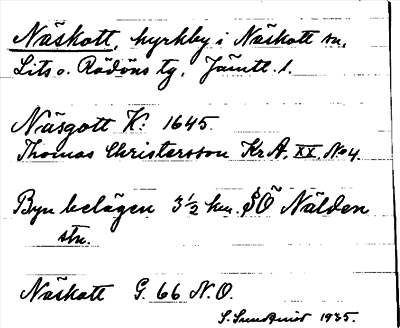 Näskott, kyrkby i Näskott sn,
Lits o. Rödöns tg, Jämtl. l.
Näsgott K: 1645.
Thomas Christersson Kr A, XX, No 4.
Byn belägen 3 1/2 km. SÖ Nälden
stn.
Näskott G. 66 N.O.
S. Sundqvist 1935.